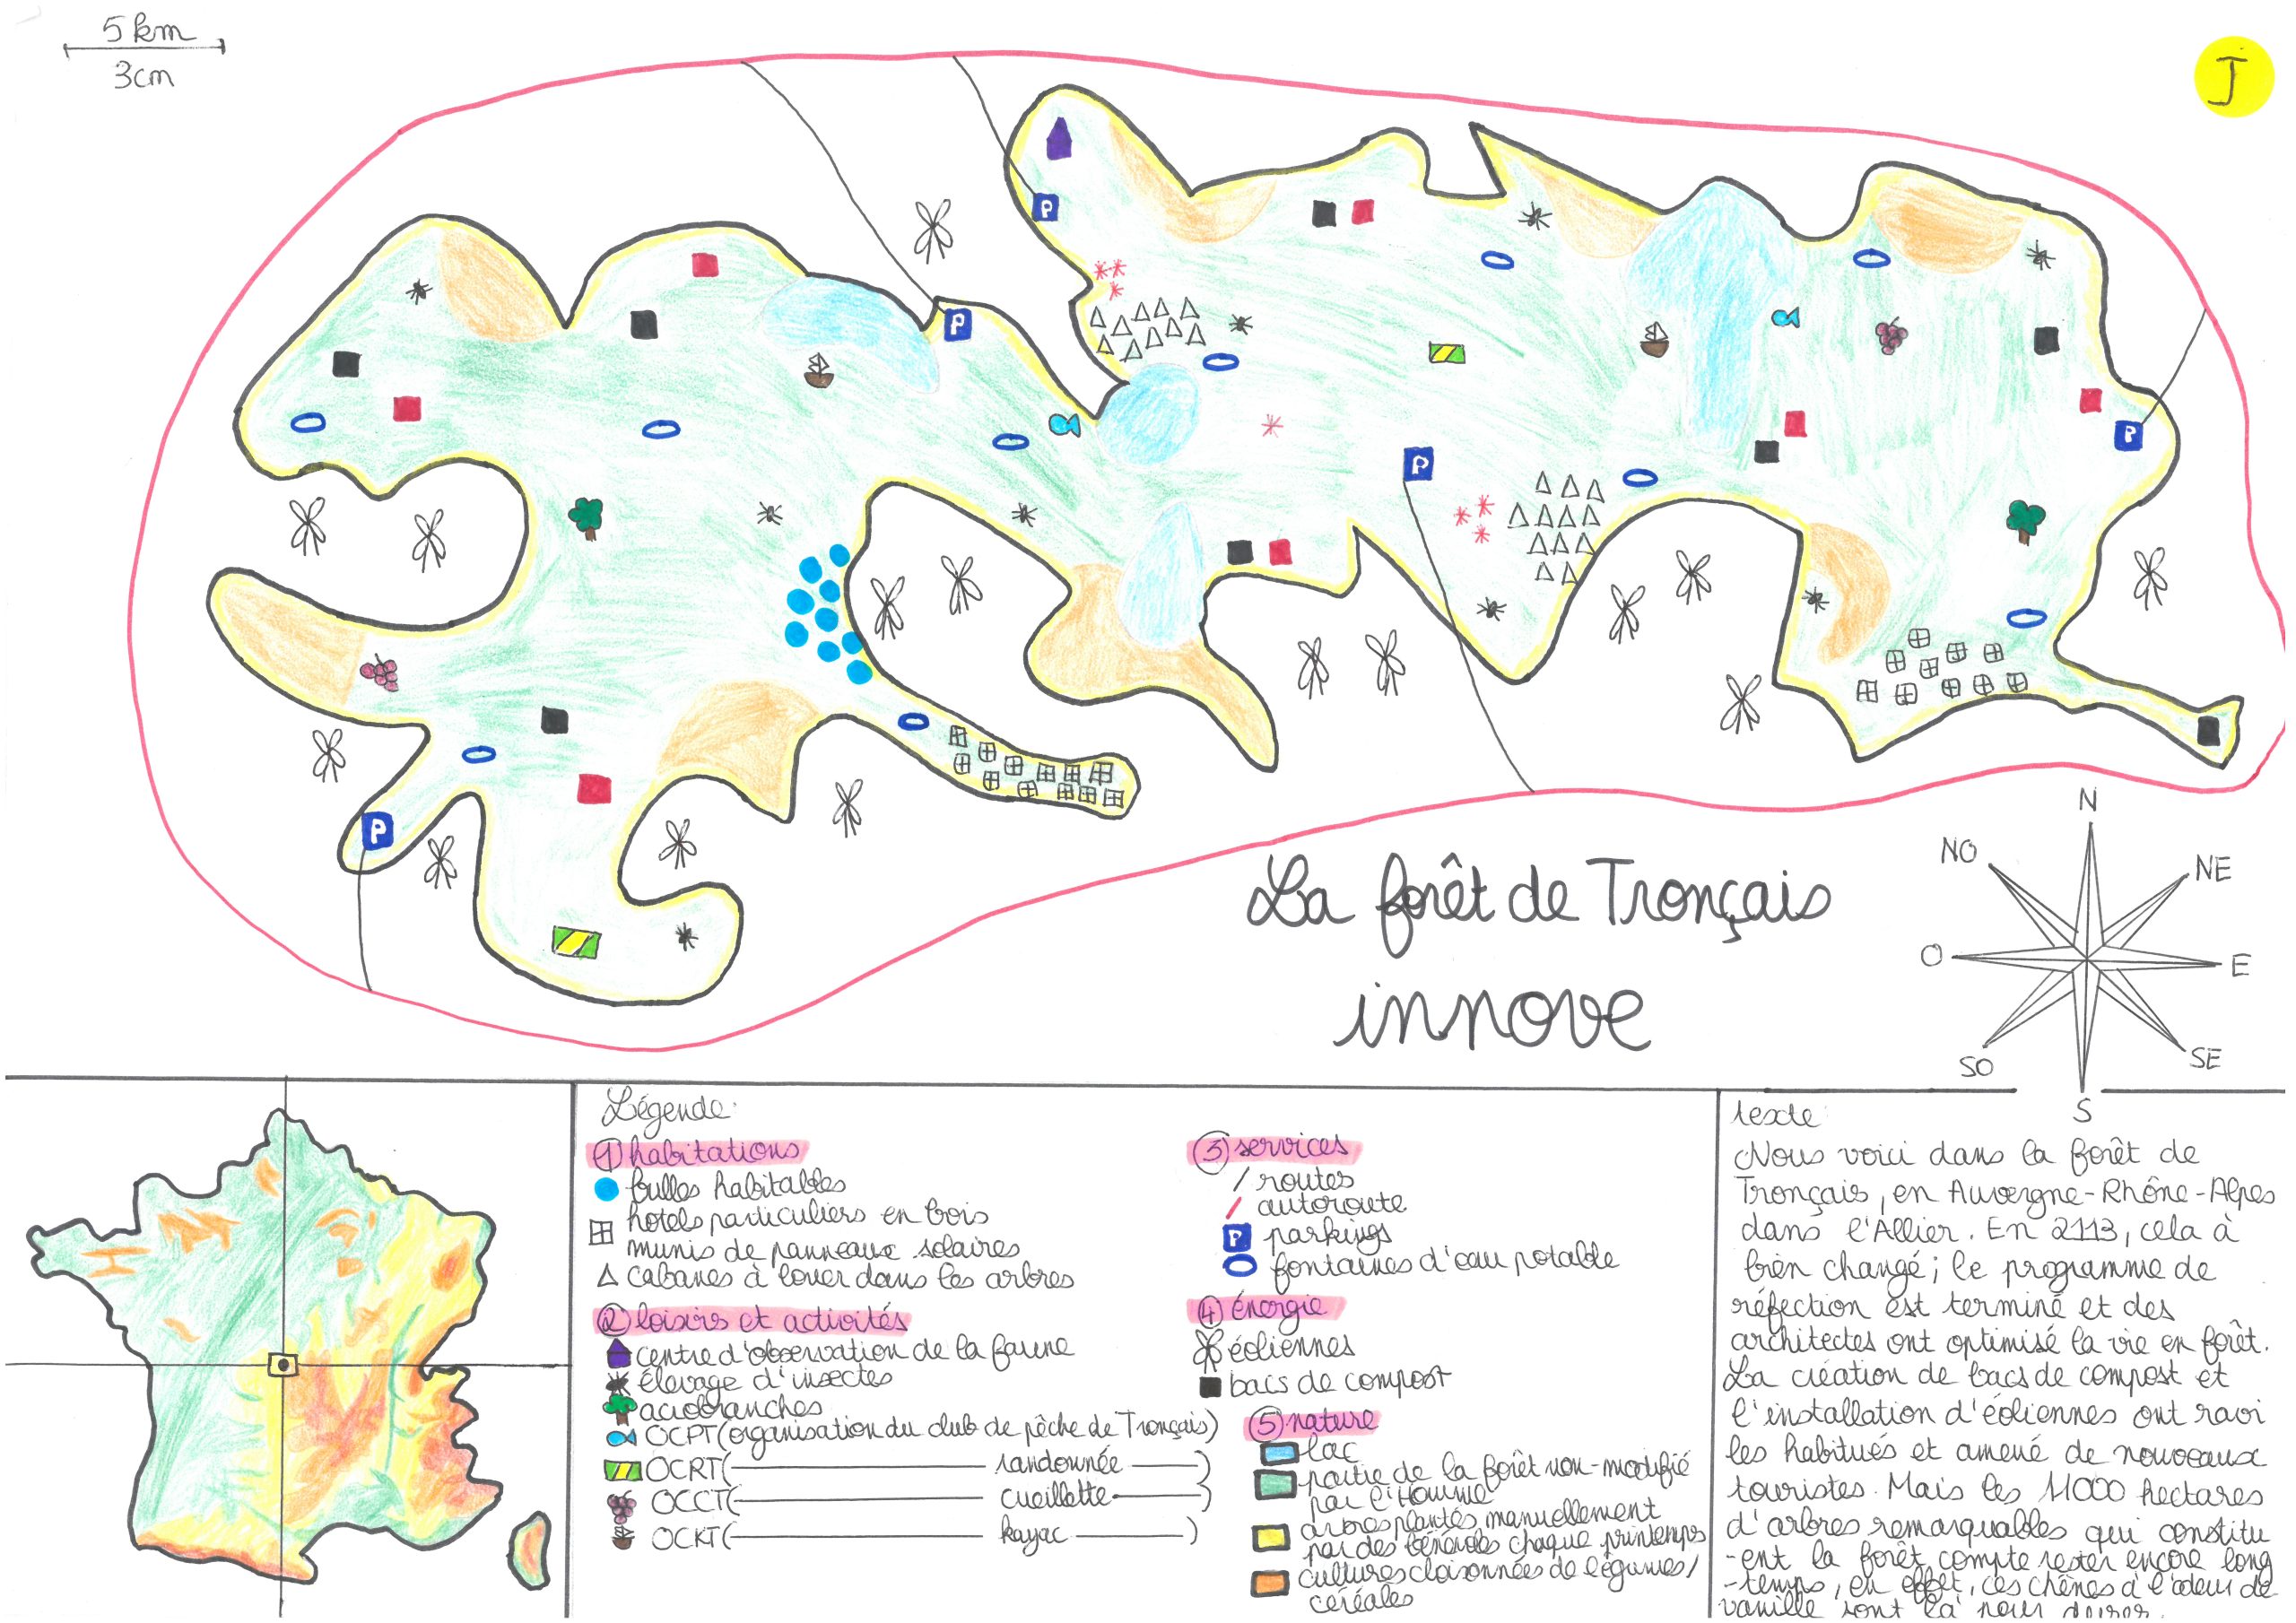 5 km
3cm
J
P
P
P
P
P
La forêt de Tronçais
innove
N
NO
NE
O
E
SO
SE
S
Légende:
① habitations
bulles habitables
hotels particuliers en bois
munis de panneaux solaires
cabanes à louer dans les arbres
② loisirs et activités
centre d'observation de la faune
élevage d'insectes
accrobranches
OCPT (organisation du club de pêche de Tronçais)
OCRT ( randonnée )
OCCT ( cueillette )
OCKT ( kayac )
③ services
routes
autoroute
P parkings
fontaines d'eau potable
④ énergie
éoliennes
bacs de compost
⑤ nature
lac
partie de la forêt non-modifié
par l'Homme
arbres plantés manuellement
par des bénévoles chaque printemps
cultures cloisonnées de légumes/
céréales
texte:
Nous voici dans la forêt de
Tronçais, en Auvergne-Rhône-Alpes
dans l'Allier. En 2113, cela à
bien changé; le programme de
réfection est terminé et des
architectes ont optimisé la vie en forêt.
La création de bacs de compost et
l'installation d'éoliennes ont ravi
les habitués et amené de nouveaux
touristes. Mais les 11000 hectares
d'arbres remarquables qui constitu
-ent la forêt compte rester encore long
-temps, en effet, ces chênes à l'odeur de
vanille sont là pour durer.